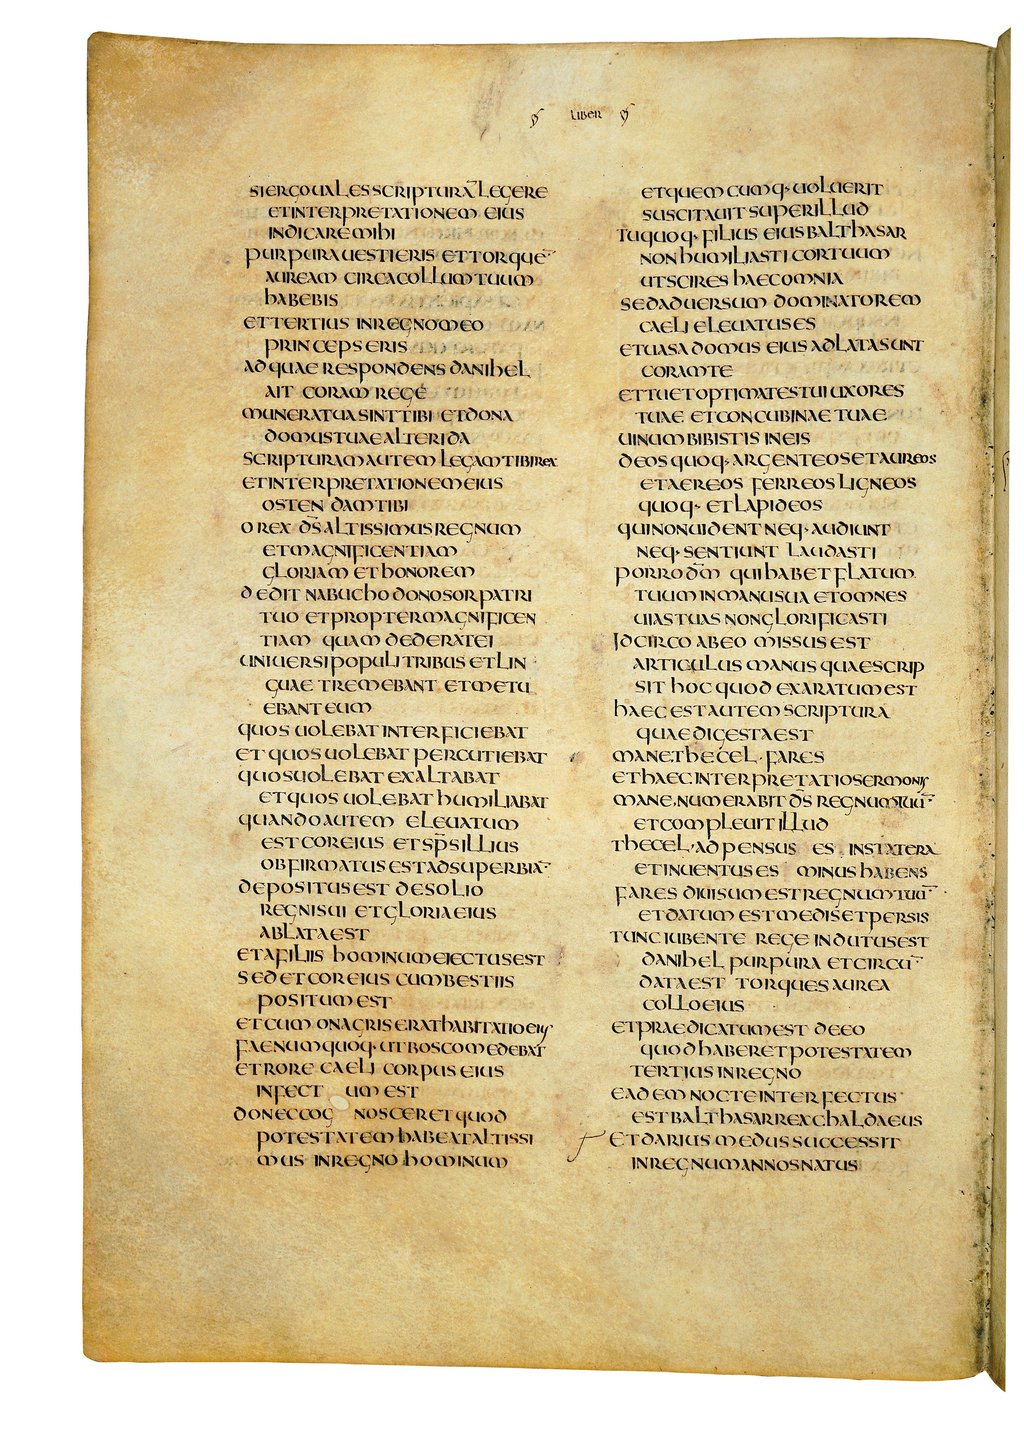 LIBER
SIERGOUALESSCRIPTURĀ LEGERE
ETINTERPRETATIONEM EIUS
INDICAREMIHI
PURPURAUESTIERIS ETTORQUĒ
AUREAM CIRCACOLLUMTUUM
HABEBIS
ETTERTIUS INREGNOMEO
PRINCEPSERIS
ADQUAE RESPONDENS DANIHEL
AIT CORAM REGE
MUNERATUASINTTIBI ETDONA
DOMUSTUAEALTERIDA
SCRIPTURAMAUTEM LEGAMTIBIREX
ETINTERPRETATIONEMEIUS
OSTENDAMTIBI
O REX D̄S ALTISSIMUSREGNUM
ETMAGNIFICENTIAM
GLORIAM ETHONOREM
DEDIT NABUCHODONOSORPATRI
TUO ETPROPTERMAGNIFICEN
TIAM QUAM DEDERATEI
UNIUERSIPOPULI TRIBUS ETLIN
GUAE TREMEBANT ETMETU
EBANTEUM
QUOS UOLEBATINTERFICIEBAT
ET QUOSUOLEBAT PERCUTIEBAT
QUOSUOLEBATEXALTABAT
ETQUOS UOLEBATHUMILIABAT
QUANDOAUTEM ELEUATUM
ESTCOREIUS ETSP̄SILLIUS
OBFIRMATUSESTADSUPERBIĀ
DEPOSITUSEST DESOLIO
REGNISUI ETGLORIAEIUS
ABLATAEST
ETAFILIIS HOMINUMEIECTUSEST
SEDETCOREIUS CUMBESTIIS
POSITUMEST
ETCUM ONAGRISERATHABITATIOEIUS
FAENUMQUOQ· UTBOSCOMEDEBAT
ETRORE CAELI CORPUSEIUS
INFECT UMEST
DONECCOG NOSCERETQUOD
POTESTATEMHABEATALTISSI
MUS INREGNOHOMINUM
ETQUEMCUMQ· UOLUERIT
SUSCITAUITSUPERILLUD
TUQUOQ· FILIUS EIUSBALTHASAR
NONHUMILIASTICORTUUM
UTSCIRES HAECOMNIA
SEDADUERSUM DOMINATOREM
CAELI ELEUATUSES
ETUASADOMUS EIUS ADLATASUNT
CORAMTE
ETTUETOPTIMATESTUIUXORES
TUAE ETCONCUBINAETUAE
UINUMBIBISTIS INEIS
DEOSQUOQ· ARGENTEOSETAUREOS
ETAEREOS FERREOSLIGNEOS
QUOQ· ETLAPIDEOS
QUINONUIDENTNEQ· AUDIUNT
NEQ· SENTIUNT LAUDASTI
PORRO D̄M QUIHABETFLATUM
TUUMINMANUSUA ETOMNES
UIASTUAS NONGLORIFICASTI
IDCIRCO ABEO MISSUSEST
ARTICULUS MANUS QUAESCRIP
SIT HOC QUOD EXARATUMEST
HAECESTAUTEMSCRIPTURA
QUAEDIGESTAEST
MANE,THECEL, FARES
ETHAEC,INTERPRETATIOSERMONIS
MANE,NUMERABIT D̄S REGNUMTUŪ
ETCOMPLEUITILLUD
THECEL,ADPENSUS ES INSTATERA
ETINUENTUSES MINUSHABENS
FARES DIUISUMESTREGNUMTUŪ
ETDATUM ESTMEDISETPERSIS
TUNCIUBENTE REGEINDUTUSEST
DANIHEL PURPURA ETCIRCŪ
DATAEST TORQUESAUREA
COLLOEIUS
ETPRAEDICATUMEST DEEO
QUODHABERETPOTESTATEM
TERTIUSINREGNO
EADEMNOCTEINTERFECTUS
ESTBALTHASARREXCHALDAEUS
ETDARIUS MEDUSSUCCESSIT
INREGNUMANNOSNATUS